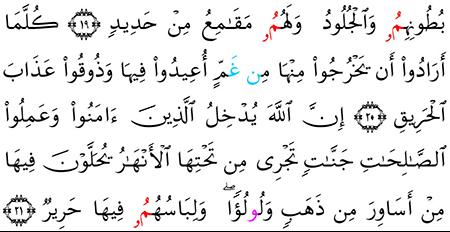 بُطُونِهِمُۥ وَٱلْجُلُودُ وَلَهُمُۥ مَقَٰمِعُ مِنْ حَدِيدٍ ١٩ كُلَّمَا
أَرَادُواْ أَن يَخْرُجُواْ مِنْهَا مِن غَمٍّ أُعِيدُواْ فِيهَا وَذُوقُواْ عَذَابَ
ٱلْحَرِيقِ ٢٠ إِنَّ ٱللَّهَ يُدْخِلُ ٱلَّذِينَ ءَامَنُواْ وَعَمِلُواْ
ٱلصَّٰلِحَٰتِ جَنَّٰتٍ تَجْرِى مِن تَحْتِهَا ٱلْأَنْهَٰرُ يُحَلَّوْنَ فِيهَا
مِنْ أَسَاوِرَ مِن ذَهَبٍ وَلُولُؤًاۖ وَلِبَاسُهُمُۥ فِيهَا حَرِيرٌ ٢١